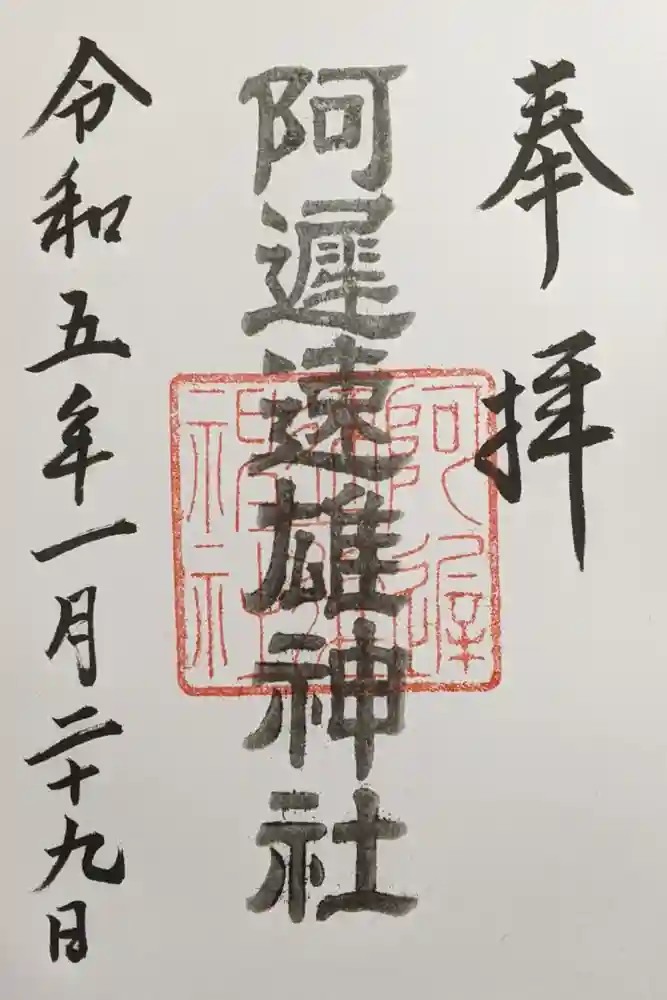 奉拝
阿遅速雄神社
阿遅速雄神社
令和五年一月二十九日